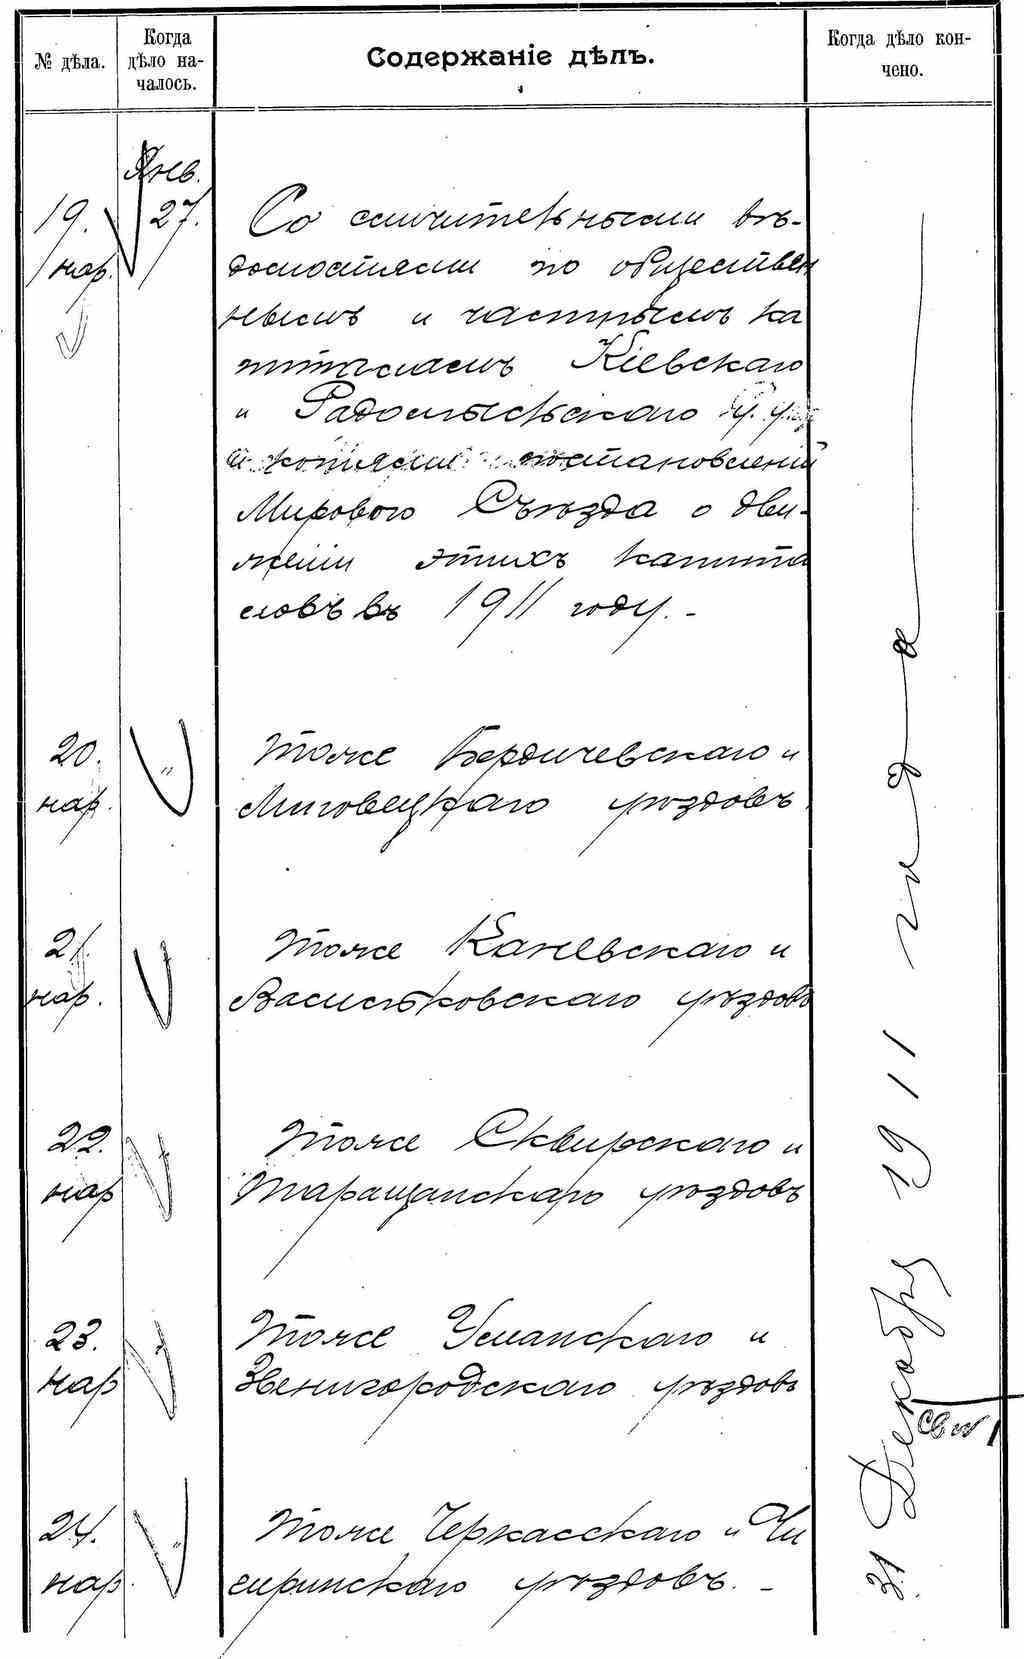 № дѣла.
Когда дѣло на-
чалось.
Содержаніе дѣлъ.
Когда дѣло кон-
чено.
Янв.
19. 27. Со сличительными вѣ-
нар. домостями по обществен
нымъ и частнымъ ка
питаламъ Кіевскаго
и Радомысльскаго
и копіями постановленій
Мирового Съѣзда о дви-
женіи этихъ капита
ловъ въ 1911 году. -
20. " Тоже Бердичевскаго и
нар. Липовецкаго уѣздовъ
21. Тоже Каневскаго и
нар. Васильковскаго уѣздовъ
22. Тоже Сквирскаго и
нар Таращанскаго уѣздовъ
23. Тоже Уманскаго и
нар Звенигородскаго уѣздовъ
24. " Тоже Черкасскаго и Чи
нар. гиринскаго уѣздовъ. -
31 Декабря 1911 года